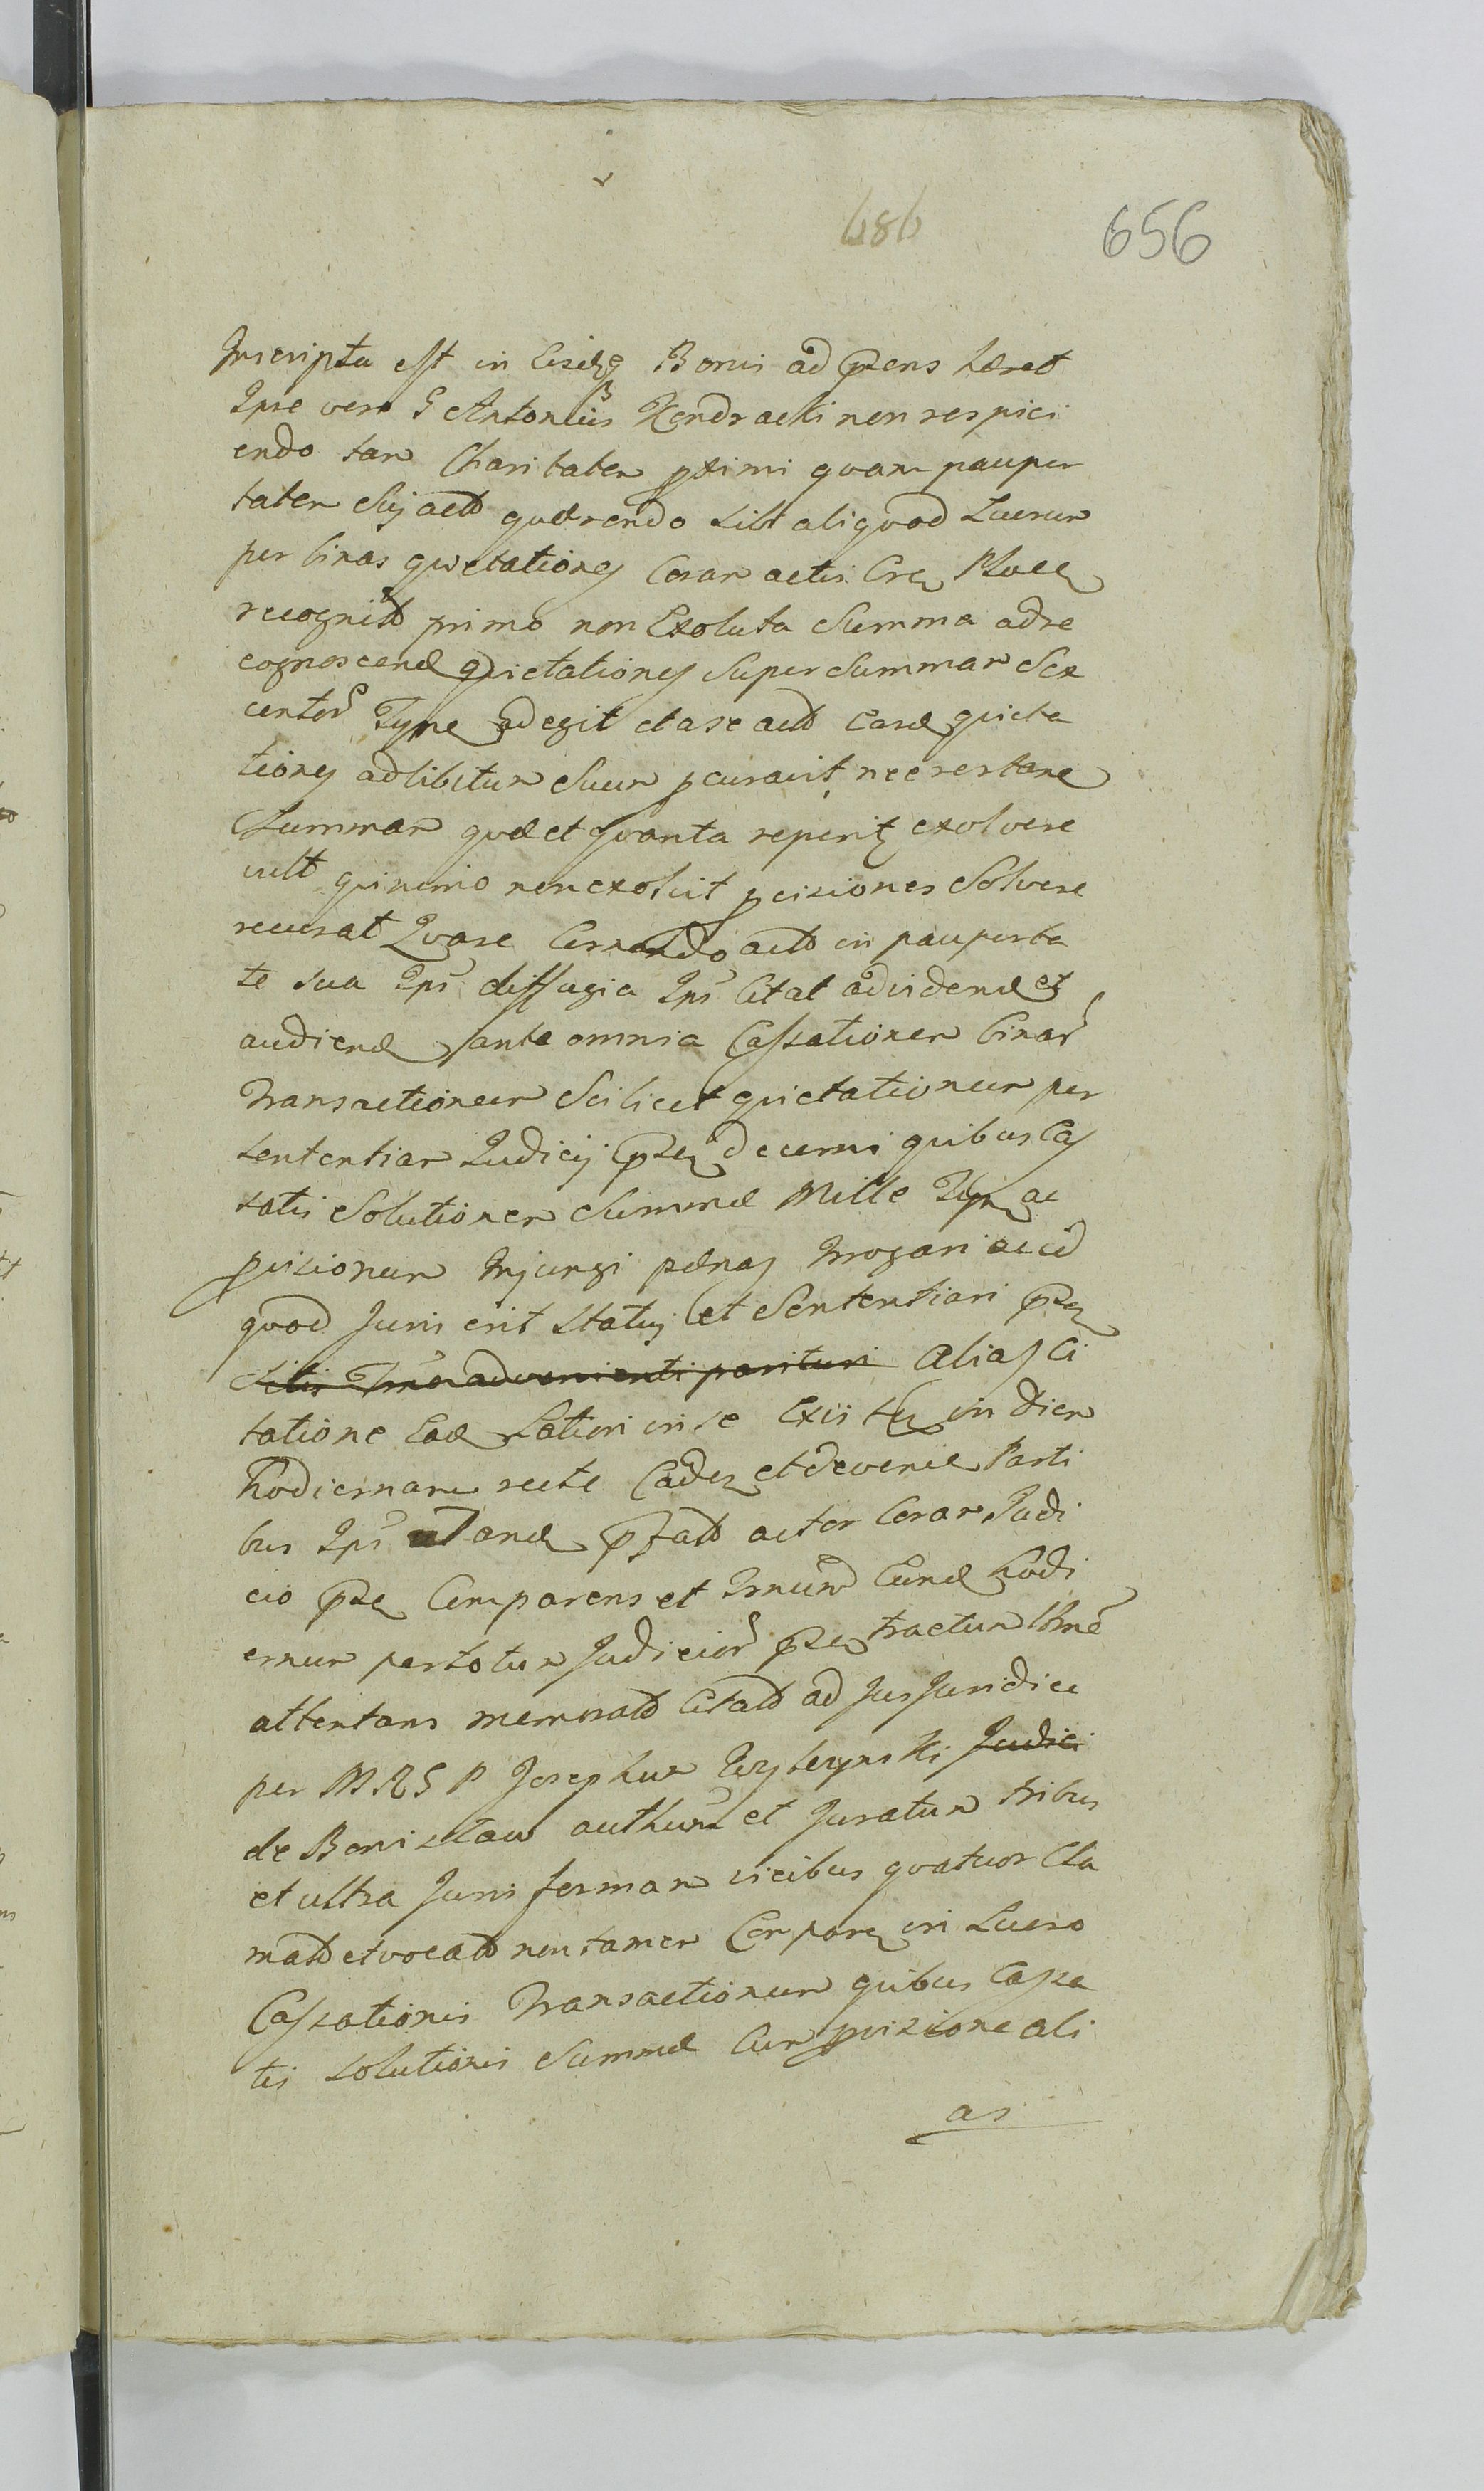 686 656
Inscripta est in Eisdq Bonis ad pzens hæret
Ipse vero G Antonius Kendracki non respici
endo tam Charitatem pximi quam pauper
tatem Suj actō quærendo sibi aliquod Lucrum
per binas quietationes Coram actis Cre Ploce
recognitō primo non Exoluta Summa ad re
cognoscend quietationes Super Summam Sex
centor Tynf adegit et a se actō Easd quieta
tiones ad libitum Suum pcuravit, nec restanē
Summam quæ et quanta reperitz exolvere
vult quinimo non exolvit pvisiones Solvere
recusat Quare Cernendo actō in pauperta
te sua Ips diffugia Ips Citat ad vidend et
audiend ante omnia Cassationem binar
Transactionum Scilicet quietationum per
sententiam Judicij pze decerni quibus Cas
satis Solutionem Summæ Mille Tynf ac
pvisionum Injungi pænas Irrogari ac id
quod Juris erit Statuj et Sententiari pze
advenienti parituri Alias Ci
tatione Ead Latiori in se Exis in diem
hodiernam recte Caden et devenien Parti
bus Ips pfatō actor Coram Judi
cio pze Comparens et Tmnum Eund hodi
ernum per totum Judicior pze tractum
attentans memoratō Citatō ad Jus Juridice
per M R G P Josephum Judici
de Bonislaw authum et Juratum tribus
et ultra Juris formam vicibus quatuor Cla
matō et vocatō non tamen Compare in Lucro
Cassationis Transactionum quibus Cassa
tis solutionis Summæ Cum pvisione ali
as